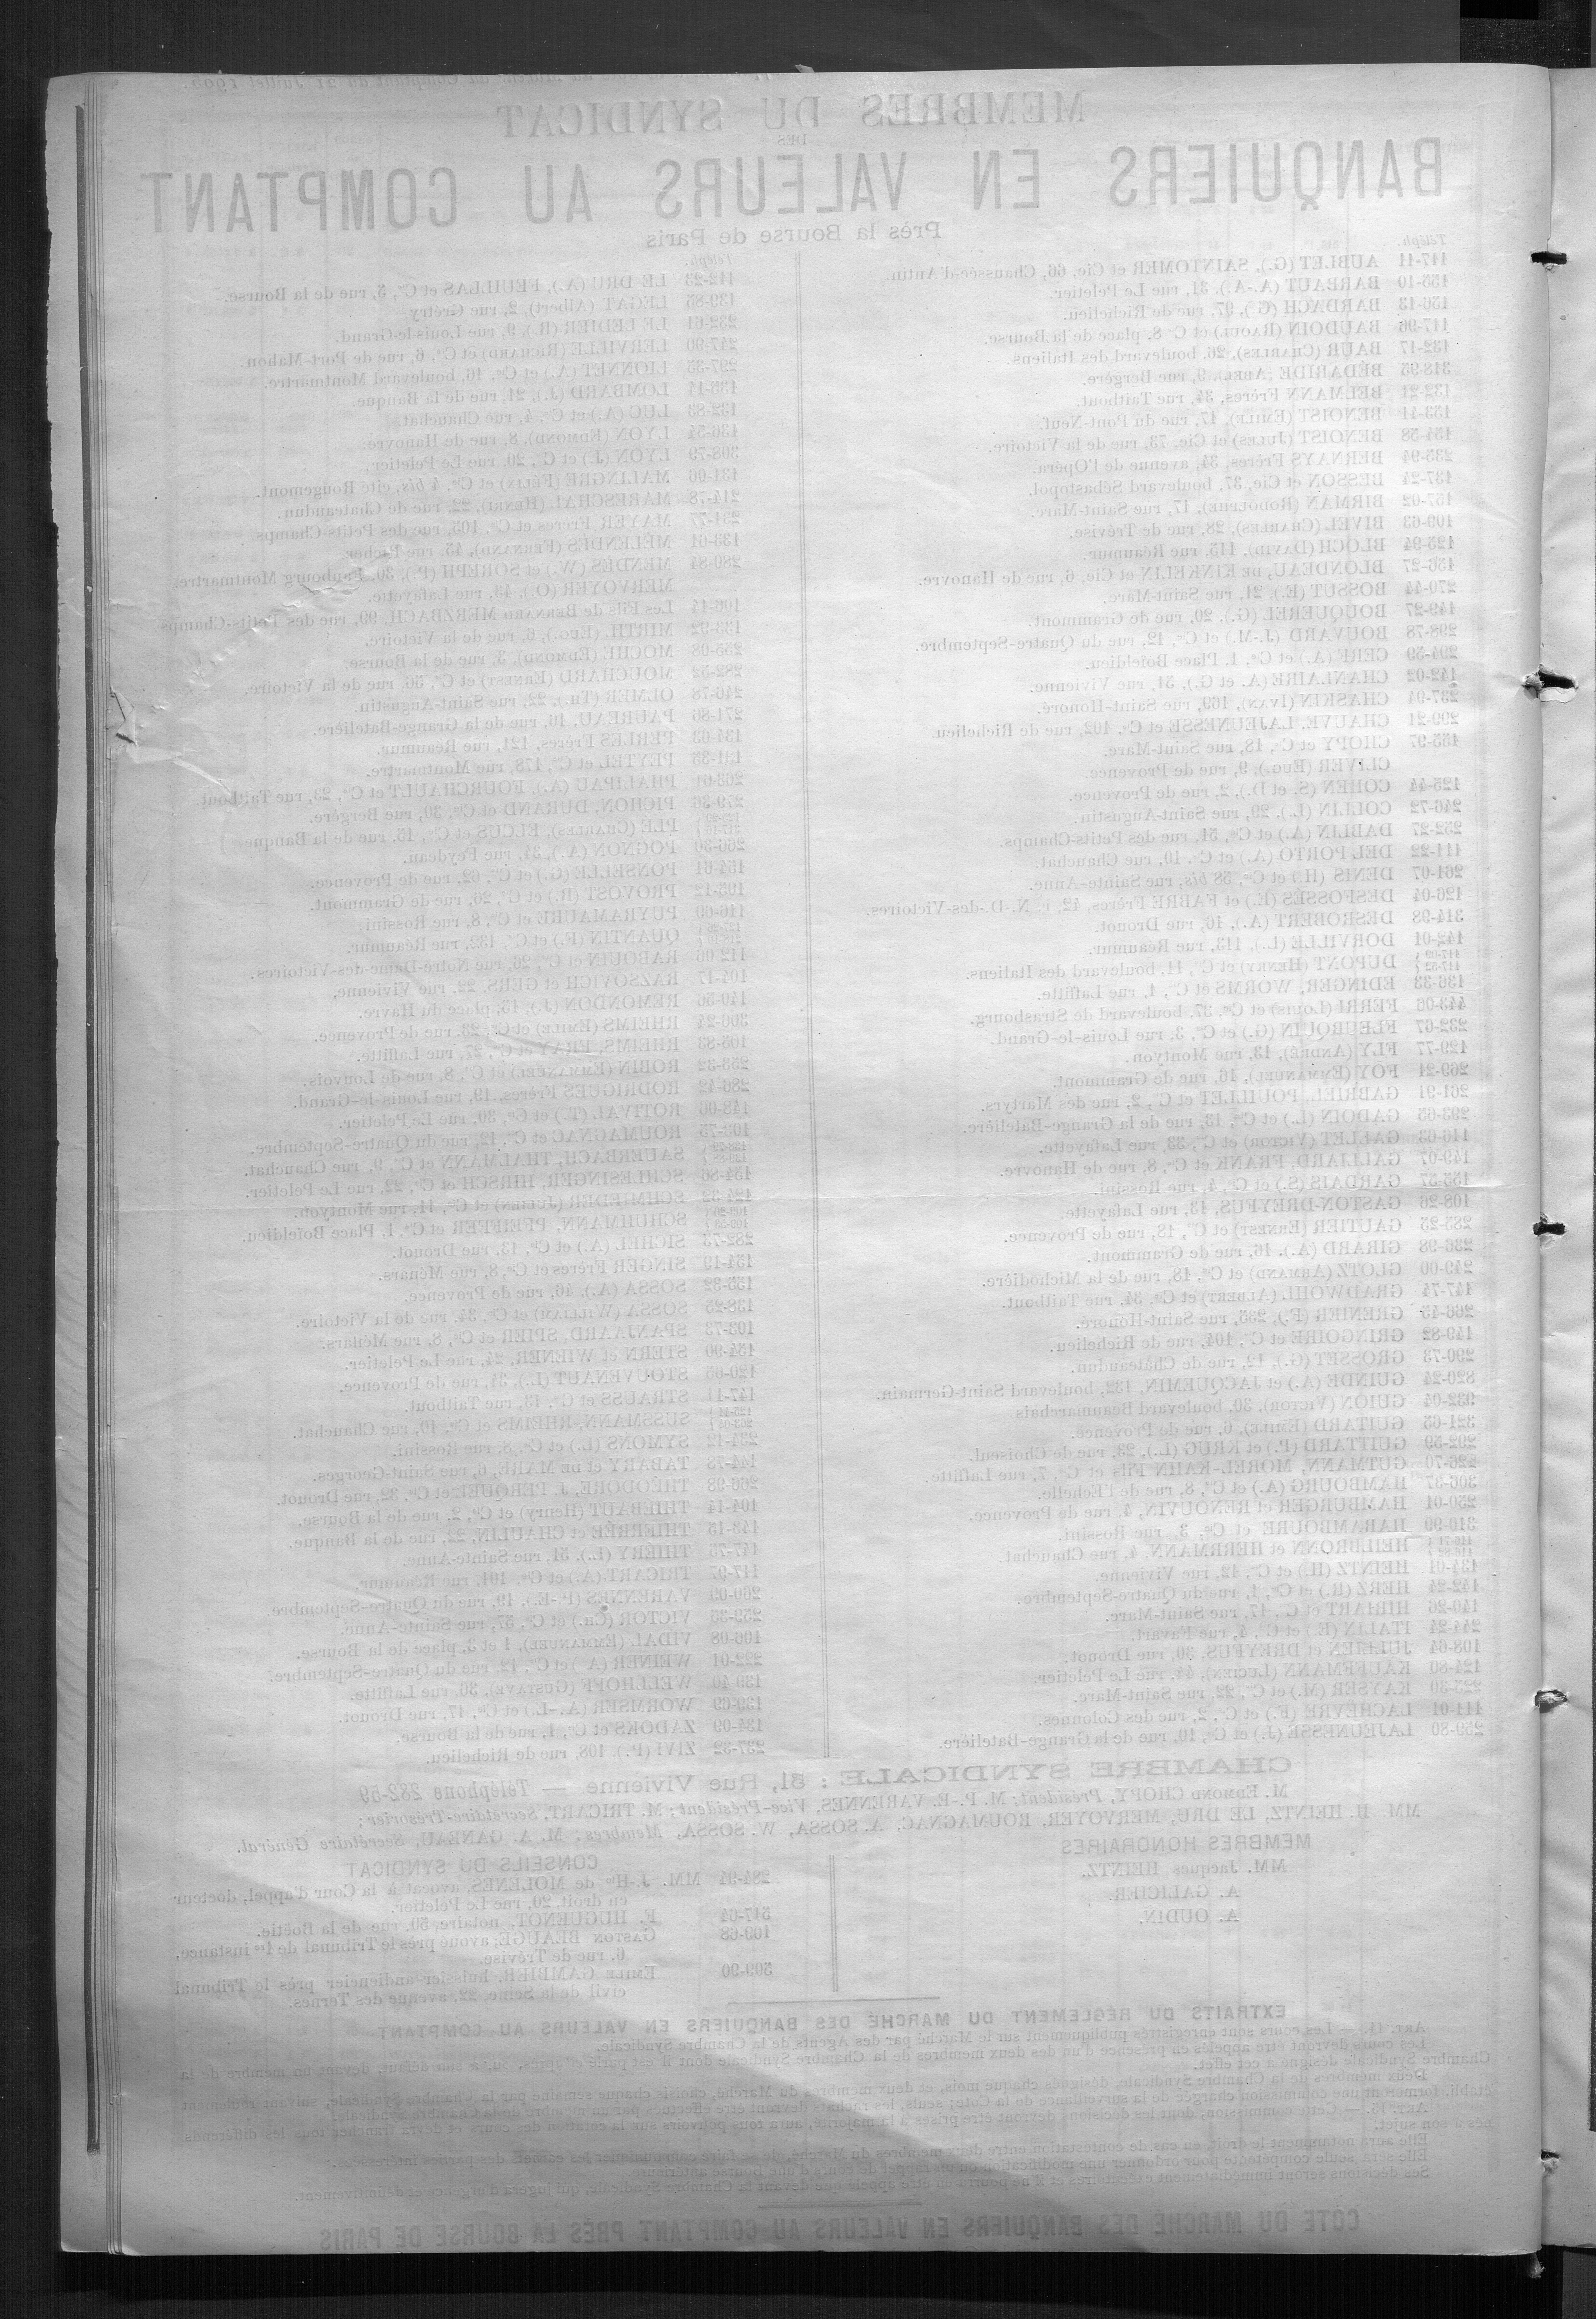 MEMBRES DU SYNDICAT
DES
BANQUIERS EN VALEURS AU COMPTANT
Près la Bourse de Paris
Téléph.
117-11 AUBLET (G.), SAINTOMER et Cie, 66, Chaussée-d'Antin.
155-10 BARBAUT (A.-A.), 31, rue Le Peletier.
156-13 BARDACH (G.), 97, rue de Richelieu.
117-96 BAUDOIN (RAOUL) et Cie, 8, place de la Bourse.
132-17 BAUR (CHARLES), 26, boulevard des Italiens.
318-95 BÉDARIDE (ABEL), 9, rue Bergère.
132-21 BELMANN Frères, 34, rue Taitbout.
153-41 BENOIST (EMILE), 17, rue du Pont-Neuf.
154-58 BENOIST (JULES) et Cie, 73, rue de la Victoire.
235-94 BERNAYS Frères, 34, avenue de l'Opéra.
137-24 BESSON et Cie, 37, boulevard Sébastopol.
157-02 BIRMAN (RODOLPHE), 17, rue Saint-Marc.
109-63 BIVEL (CHARLES), 28, rue de Trévise.
125-94 BLOCH (DAVID), 115, rue Réaumur.
156-27 BLONDEAU, DE KINKELIN et Cie, 6, rue de Hanovre.
270-44 BOSSUT (E.), 21, rue Saint-Marc.
149-27 BOUQUEREL (G.), 20, rue de Grammont.
298-78 BOUVARD (J.-M.) et Cie, 12, rue du Quatre-Septembre.
204-59 CERF (A.) et Cie, 1, Place Boïeldieu.
142-02 CHANLAIRE (A. et G.), 51, rue Vivienne.
237-94 CHASKIN (IVAN), 169, rue Saint-Honoré.
299-21 CHAUVE, LAJEUNESSE et Cie, 102, rue de Richelieu.
155-97 CHOPY et Cie, 18, rue Saint-Marc.
CLIVER (EUG.), 9, rue de Provence.
125-44 COHEN (S. et D.), 2, rue de Provence.
246-72 COLLIN (L.), 29, rue Saint-Augustin.
252-27 DABLIN (A.) et Cie, 51, rue des Petits-Champs.
111-22 DEL PORTO (A.) et Cie, 10, rue Chauchat.
261-07 DENIS (H.) et Cie, 58 bis, rue Sainte-Anne.
126-04 DESFOSSÉS (E.) et FABRE Frères, 42, r. N.-D.-des-Victoires.
314-98 DESROBERT (A.), 16, rue Drouot.
142-01 DORVILLE (L.), 113, rue Réaumur.
DUPONT (HENRY) et Cie, 11, boulevard des Italiens.
136-33 EDINGER, WORMS et Cie, 1, rue Laffitte.
443-06 FERRI (LOUIS) et Cie, 37, boulevard de Strasbourg.
232-67 FLEURQUIN (G.) et Cie, 3, rue Louis-le-Grand.
129-77 FLY (ANDRÉ), 13, rue Montyon.
269-21 FOY (EMMANUEL), 16, rue de Grammont.
261-91 GABRIEL, POUILLET et Cie, 2, rue des Martyrs.
293-65 GADOIN (L.) et Cie, 13, rue de la Grange-Batelière.
116-63 GALLET (VICTOR) et Cie, 33, rue Lafayette.
149-07 GALLIARD, FRANK et Cie, 8, rue de Hanovre.
155-57 GARDAIS (S.) et Cie, 4, rue Rossini.
108-26 GASTON-DREYFUS, 13, rue Lafayette.
285-25 GAUTIER (ERNEST) et Cie, 18, rue de Provence.
236-98 GIRARD (A.), 16, rue de Grammont.
249-00 GLOTZ (ARMAND) et Cie, 18, rue de la Michodière.
147-74 GRADWOHL (ALBERT) et Cie, 34, rue Taitbout.
266-45 GRENIER (P.), 235, rue Saint-Honoré.
149-82 GRINGOIRE et Cie, 104, rue de Richelieu.
290-73 GROSSET (G.), 12, rue de Châteaudun.
820-24 GUINDE (A.) et JACQUEMIN, 132, boulevard Saint-Germain.
932-04 GUION (VICTOR), 30, boulevard Beaumarchais.
321-65 GUITARD (EMILE), 6, rue de Provence.
292-59 GUITTARD (P.) et KRUG (L.), 23, rue de Choiseul.
226-70 GUTMANN, MOREL-KAHN Fils et Cie, 7, rue Laffitte.
306-37 HAMBOURG (A.) et Cie, 8, rue de l'Echelle.
250-01 HAMBURGER et RENOUVIN, 4, rue de Provence.
310-99 HARAMBOURE et Cie, 3, rue Rossini.
HEILBRONN et HERRMANN, 4, rue Chauchat.
134-01 HEINTZ (H.) et Cie, 12, rue Vivienne.
142-24 HERZ (R.) et Cie, 1, rue du Quatre-Septembre.
140-26 HIRIART et Cie, 17, rue Saint-Marc.
244-24 ITALIN (E.) et Cie, 4, rue Favart.
108-64 JULLIEN et DREYFUS, 30, rue Drouot.
124-80 KAUFFMANN (LUCIEN), 44, rue Le Peletier.
225-30 KAYSER (M.) et Cie, 22, rue Saint-Marc.
111-01 LACHÈVRE (F.) et Cie, 2, rue des Colonnes.
259-80 LAJEUNESSE (J.) et Cie, 10, rue de la Grange-Batelière.
Téléph.
112-23 LE DRU (A.), FEUILLAS et Cie, 5, rue de la Bourse.
139-85 LEGAT (Albert), 2, rue Grétry.
232-61 LE LEDIER (R.), 9, rue Louis-le-Grand.
247-90 LERVILLE (RICHARD) et Cie, 6, rue de Port-Mahon.
297-35 LIONNET (A.) et Cie, 16, boulevard Montmartre.
LOMBARD (J.), 21, rue de la Banque.
132-83 LUC (A.) et Cie, 4, rue Chauchat.
136-54 LYON (EDMOND), 8, rue de Hanovre.
308-79 LYON (J.) et Cie, 20, rue Le Peletier.
131-06 MALINGRE (FÉLIX) et Cie, 4 bis, cité Rougemont.
214-78 MARESCHAL (HENRI), 22, rue de Chateaudun.
231-77 MAYER Frères et Cie, 103, rue des Petits-Champs.
133-01 MÉLENDÈS (FERNAND), 45, rue Richer.
289-84 MENDÈS (W.) et SOREPH (P.), 30, Faubourg Montmartre.
MERVOYER (O.), 43, rue Lafayette.
106-14 Les Fils de BERNARD MERZBACH, 99, rue des Petits-Champs.
133-92 MIRTIL (EUG.), 6, rue de la Victoire.
255-08 MOCHE (EDMOND), 3, rue de la Bourse.
282-52 MOUCHARD (ERNEST) et Cie, 56, rue de la Victoire.
240-78 OLMER (TH.), 22, rue Saint-Augustin.
271-86 PAUREAU, 16, rue de la Grange-Batelière.
134-63 PERLÈS Frères, 121, rue Réaumur.
131-35 PEYTEL et Cie, 178, rue Montmartre.
203-01 PHALIPAU (A.), FOURCHAULT et Cie, 23, rue Taitbout.
279-36 PICHON, DURAND et Cie, 30, rue Bergère.
PLÉ (CHARLES), ELCUS et Cie, 15, rue de la Banque.
266-30 POGNON (A.), 34, rue Feydeau.
154-61 PONSELLE (G.) et Cie, 62, rue de Provence.
105-12 PROVOST (R.) et Cie, 26, rue de Grammont.
116-60 PUYRAMAURE et Cie, 8, rue Rossini.
QUANTIN (F.) et Cie, 132, rue Réaumur.
112-06 RABOUIN et Cie, 26, rue Notre-Dame-des-Victoires.
104-17 RAZSOVICH et GERS, 22, rue Vivienne.
140-56 REMONDON (J.), 15, place du Havre.
306-24 RHEIMS (EMILE) et Cie, 23, rue de Provence.
105-83 RHEIMS, FRAY et Cie, 27, rue Laffitte.
253-32 ROBIN (EMMANÈRE) et Cie, 8, rue de Louvois.
286-42 RODRIGUES Frères, 19, rue Louis-le-Grand.
148-06 ROTIVAL (T.) et Cie, 30, rue Le Peletier.
103-75 ROUMAGNAC et Cie, 12, rue du Quatre-Septembre.
SAUERBACH, THALMANN et Cie, 9, rue Chauchat.
154-86 SCHLESINGER, HIRSCH et Cie, 22, rue Le Peletier.
124-32 SCHMIEDER (JULIEN) et Cie, 11, rue Montyon.
SCHUHMANN, PFEIFFER et Cie, 1, Place Boïeldieu.
282-75 SICHEL (A.) et Cie, 13, rue Drouot.
154-19 SINGER Frères et Cie, 8, rue Ménars.
155-32 SOSSA (A.), 46, rue de Provence.
138-25 SOSSA (WILLIAM) et Cie, 34, rue de la Victoire.
103-73 SPANJAARD, SPIER et Cie, 8, rue Ménars.
154-90 STERN et WIENER, 24, rue Le Peletier.
120-65 STOUVENAUT (L.), 34, rue de Provence.
147-11 STRAUSS et Cie, 13, rue Taitbout.
SUSSMANN, RHEIMS et Cie, 10, rue Chauchat.
234-12 SYMONS (L.) et Cie, 8, rue Rossini.
144-73 TABARY et DE MARE, 6, rue Saint-Georges.
266-98 THÉODORE, J. PERQUEL et Cie, 32, rue Drouot.
104-14 THÉBAUT (Henry) et Cie, 2, rue de la Bourse.
143-15 THIERRÉE et CHAULIN, 22, rue de la Banque.
147-75 THIÉRY (L.), 51, rue Sainte-Anne.
117-97 TRICART (A.) et Cie, 101, rue Réaumur.
260-09 VARENNES (P.-E.), 19, rue du Quatre-Septembre.
259-36 VICTOR (CH.) et Cie, 57, rue Sainte-Anne.
106-08 VIDAL (EMMANUEL), 1 et 3, place de la Bourse.
222-01 WEINER (A.) et Cie, 12, rue du Quatre-Septembre.
139-40 WELLHOFF (GUSTAVE), 36, rue Laffitte.
139-69 WORMSER (A.-L.) et Cie, 17, rue Drouot.
134-09 ZADOKS et Cie, 1, rue de la Bourse.
237-32 ZIVI (P.), 108, rue de Richelieu.
CHAMBRE SYNDICALE : 31, Rue Vivienne. — Téléphone 282-59
M. EDMOND CHOPY, Président; M. P.-E. VARENNES, Vice-Président; M. TRICART, Secrétaire-Trésorier;
MM. H. HEINTZ, LE DRU, MERVOYER, ROUMAGNAC, A. SOSSA, W. SOSSA, Membres; M. A. GANEAU, Secrétaire Général.
MEMBRES HONORAIRES
MM. Jacques HEINTZ.
A. GALICIER.
A. OUDIN.
CONSEILS DU SYNDICAT
284-94 MM. J.-Hte de MOLÈNES, avocat à la Cour d'appel, docteur
en droit, 20, rue Le Peletier.
517-04 F. HUGUENOT, notaire, 50, rue de la Boëtie.
109-68 GASTON BEAUGÉ, avoué près le Tribunal de 1re instance,
6, rue de Trévise.
509-90 EMILE GAMBIER, huissier-audiencier près le Tribunal
civil de la Seine, 22, avenue des Ternes.
EXTRAITS DU RÈGLEMENT DU MARCHÉ DES BANQUIERS EN VALEURS AU COMPTANT
ART. 14. — Les cours sont enregistrés publiquement sur le Marché par des Agents de la Chambre Syndicale.
Les cours devront être appelés en présence d'un des deux membres de la Chambre Syndicale dont il est parlé ci-après, ou, à son défaut, devant un membre de la
Chambre Syndicale désigné à cet effet.
Deux membres de la Chambre Syndicale, désignés chaque mois, et deux membres du Marché, choisis chaque semaine par la Chambre syndicale, suivant roulement
établi, formeront une commission chargée de la surveillance de la Cote; seuls, les rachats devront être effectués par un membre de la Chambre Syndicale.
ART. 15. — Cette commission, dont les décisions devront être prises à la majorité, aura tous pouvoirs sur la cotation des cours et devra trancher tous les différends
nés à son sujet.
Elle aura notamment le droit, en cas de contestation entre deux membres du Marché, de se faire communiquer les carnets des parties intéressées.
Elle sera seule compétente pour ordonner une modification ou un rappel de cours d'une Bourse antérieure.
Ses décisions seront immédiatement exécutoires et il ne pourra en être appelé que devant la Chambre Syndicale, qui jugera d'urgence et définitivement.
COTE DU MARCHÉ DES BANQUIERS EN VALEURS AU COMPTANT PRÈS LA BOURSE DE PARIS